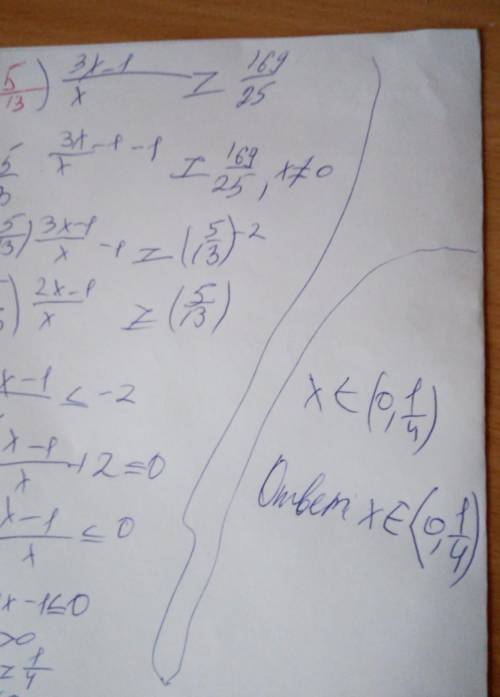 5/13) (3x-1)/x ≥ 169/25
5/3 3x/x -1-1 ≥ 169/25, x≠0
5/13) (3x-1)/x -1 ≥ (5/13)^-2
) (2x-1)/x ≥ (5/13)
x-1 ≤ -2
x-1/x +2≤0
x-1/x ≤ 0
x-1≤0
>0
≥ 1/4
x ∈ (0, 1/4)
Ответ x ∈ (0, 1/4)